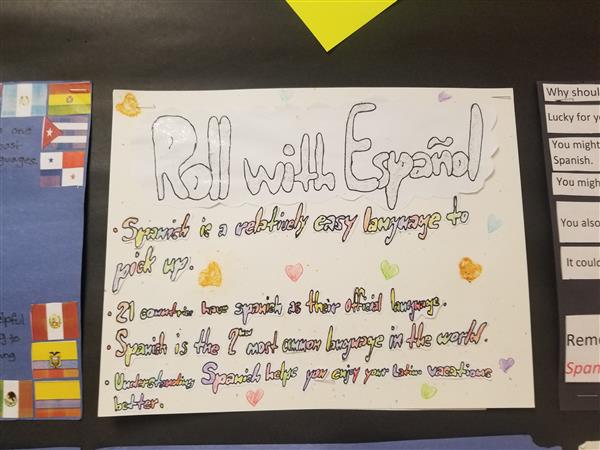 one
most
languages.
helpful
to
Roll with Español
• Spanish is a relatively easy language to
pick up.
• 21 countries have spanish as their official language.
• Spanish is the 2nd most common language in the world.
• Understanding Spanish helps you enjoy your Latin vacations
better.
Why shoul
Lucky for yo
You might
Spanish.
You migh
You also
It could
Reme
Span